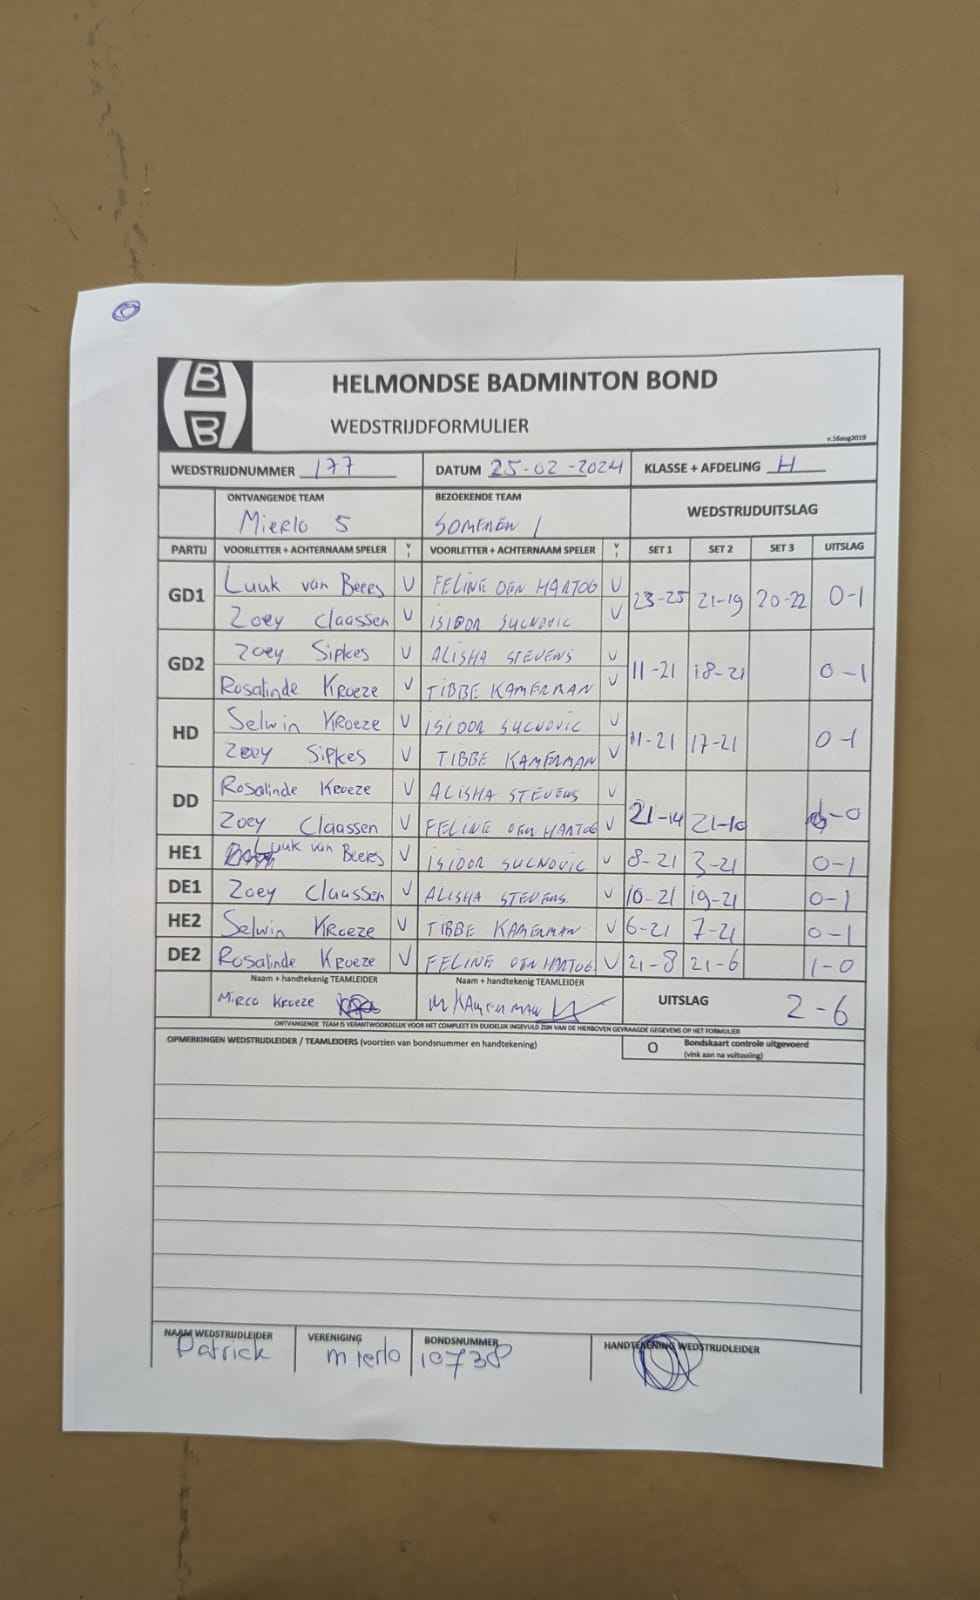 B
B
HELMONDSE BADMINTON BOND
WEDSTRIJDFORMULIER
v.16aug2019
WEDSTRIJDNUMMER 177 DATUM 25-02-2024 KLASSE + AFDELING H
ONTVANGENDE TEAM BEZOEKENDE TEAM WEDSTRIJDUITSLAG
Mierlo 5 SOMEREN 1
PARTIJ VOORLETTER + ACHTERNAAM SPELER V/I VOORLETTER + ACHTERNAAM SPELER V/I SET 1 SET 2 SET 3 UITSLAG
GD1 Luuk van Beers V FELINE DEN HARTOG V 23-25 21-19 20-22 0-1
Zoey Claassen V ISIDOR SUCNOVIC V
GD2 Zoey Sipkes V ALISHA STEVENS V 11-21 18-21 0-1
Rosalinde Kroeze V TIBBE KAMERMAN V
HD Selwin Kroeze V ISIDOR SUCNOVIC V 11-21 17-21 0-1
Zoey Sipkes V TIBBE KAMERMAN V
DD Rosalinde Kroeze V ALISHA STEVENS V
Zoey Claassen V FELINE DEN HARTOG V 21-14 21-10 -0
HE1 Luuk van Beers V ISIDOR SUCNOVIC V 8-21 3-21 0-1
DE1 Zoey Claassen V ALISHA STEVENS V 10-21 19-21 0-1
HE2 Selwin Kroeze V TIBBE KAMERMAN V 6-21 7-21 0-1
DE2 Rosalinde Kroeze V FELINE DEN HARTOG V 21-8 21-6 1-0
Naam + handtekenig TEAMLEIDER Naam + handtekenig TEAMLEIDER UITSLAG 2-6
Mirco Kroeze M KAMERMAN
ONTVANGENDE TEAM IS VERANTWOORDELIJK VOOR HET COMPLEET EN DUIDELIJK INGEVULD ZIJN VAN DE HIERBOVEN GEVRAAGDE GEGEVENS OP HET FORMULIER
OPMERKINGEN WEDSTRIJDLEIDER / TEAMLEIDERS (voorzien van bondsnummer en handtekening) O Bondskaart controle uitgevoerd
(vink aan na voltooiing)
NAAM WEDSTRIJDLEIDER VERENIGING BONDSNUMMER HANDTEKENING WEDSTRIJDLEIDER
Patrick mierlo 10738